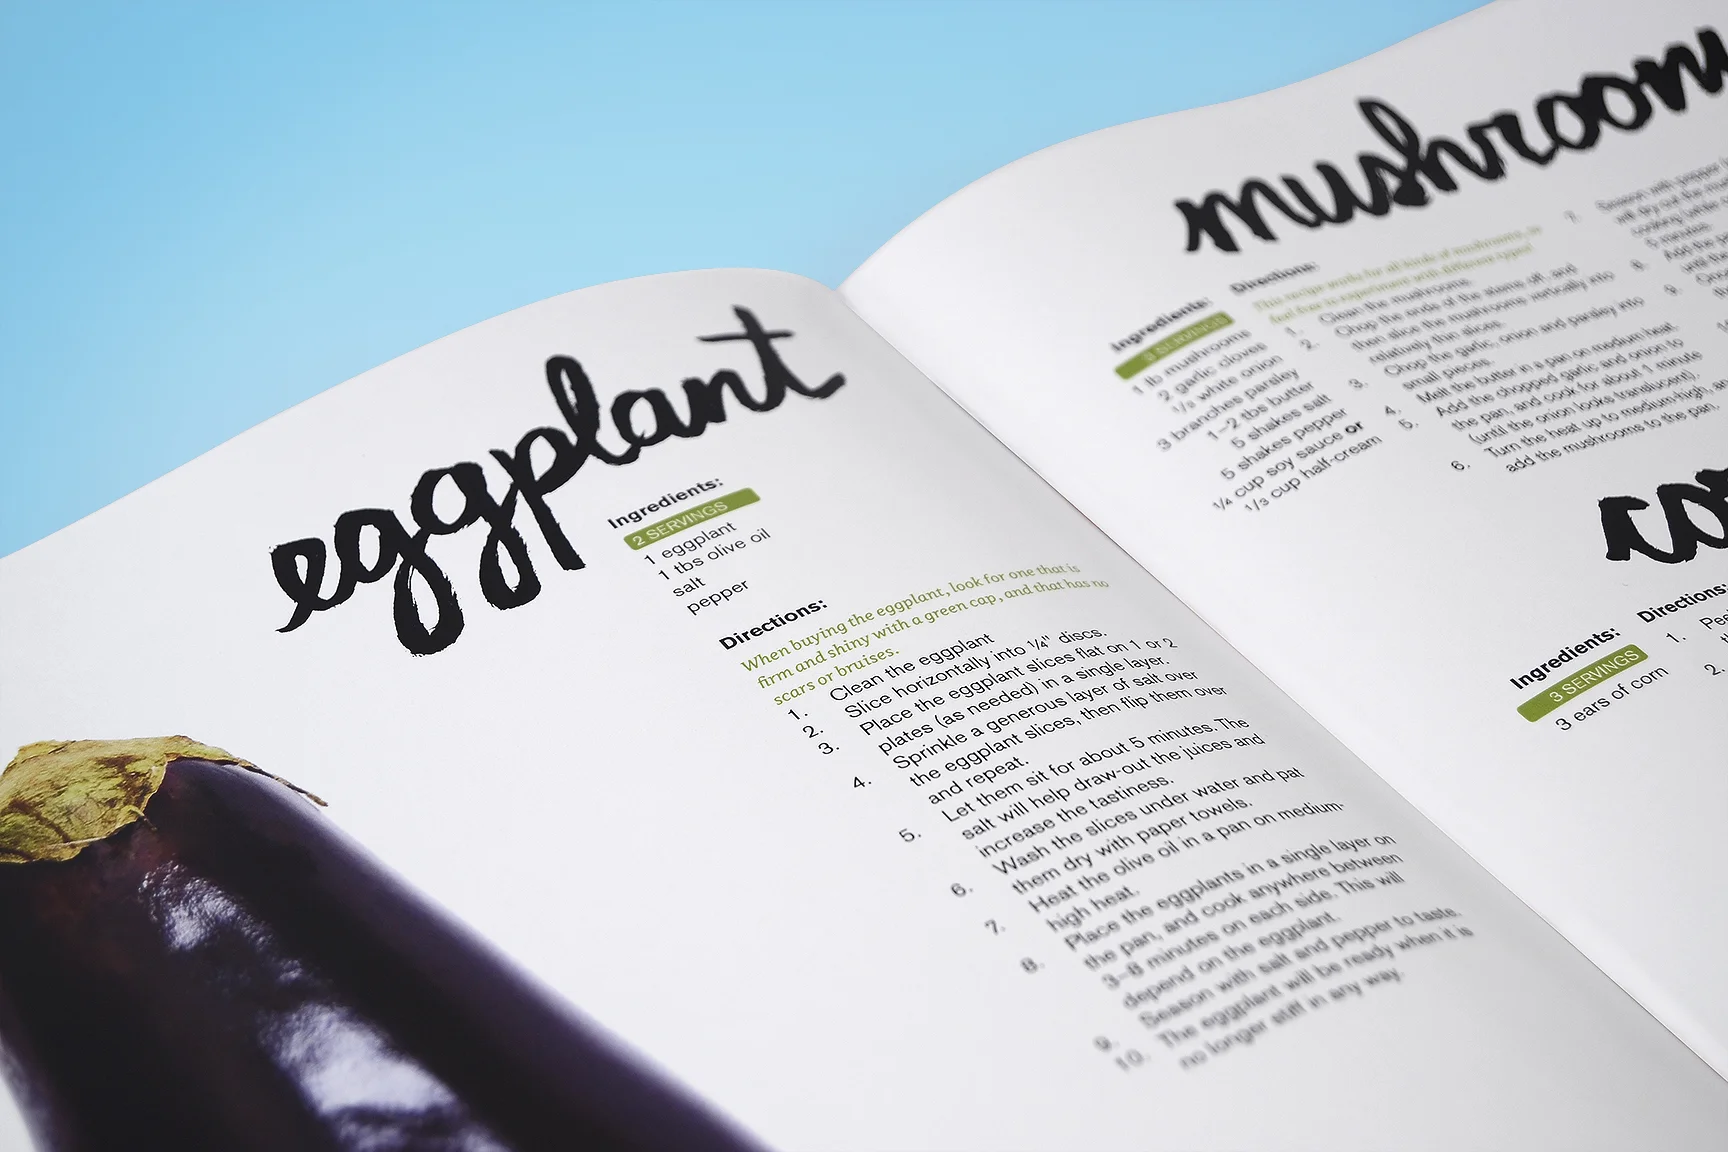 eggplant
Ingredients:
2 SERVINGS
1 eggplant
1 tbs olive oil
salt
pepper
Directions:
When buying the eggplant, look for one that is
firm and shiny with a green cap, and that has no
scars or bruises.
1. Clean the eggplant
2. Slice horizontally into ¼" discs.
3. Place the eggplant slices flat on 1 or 2
plates (as needed) in a single layer.
4. Sprinkle a generous layer of salt over
the eggplant slices, then flip them over
and repeat.
5. Let them sit for about 5 minutes. The
salt will help draw-out the juices and
increase the tastiness.
6. Wash the slices under water and pat
them dry with paper towels.
7. Heat the olive oil in a pan on medium-
high heat.
8. Place the eggplants in a single layer on
the pan, and cook anywhere between
3–8 minutes on each side. This will
depend on the eggplant.
9. Season with salt and pepper to taste.
10. The eggplant will be ready when it is
no longer stiff in any way.
mushroom
Ingredients:
3 SERVINGS
1 lb mushrooms
2 garlic cloves
½ white onion
3 branches parsley
1–2 tbs butter
5 shakes salt
5 shakes pepper
¼ cup soy sauce or
⅓ cup half-cream
Directions:
This recipe works for all kinds of mushrooms, so
feel free to experiment with different types!
1. Clean the mushrooms.
2. Chop the ends of the stems off, and
then slice the mushrooms vertically into
relatively thin slices.
3. Chop the garlic, onion and parsley into
small pieces.
4. Melt the butter in a pan on medium heat.
5. Add the chopped garlic and onion to
the pan, and cook for about 1 minute
(until the onion looks translucent).
6. Turn the heat up to medium-high, and
add the mushrooms to the pan.
7. Season with pepper
will dry out the
cooking while
5 minutes.
8. Add the
until the
9.
Ingredients:
3 SERVINGS
3 ears of corn
Directions:
1.
2.